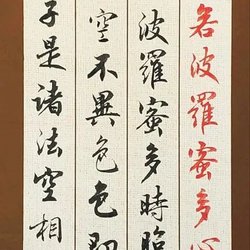 若波羅蜜多心
波羅蜜多時照
空不異色色即
子是諸法空相